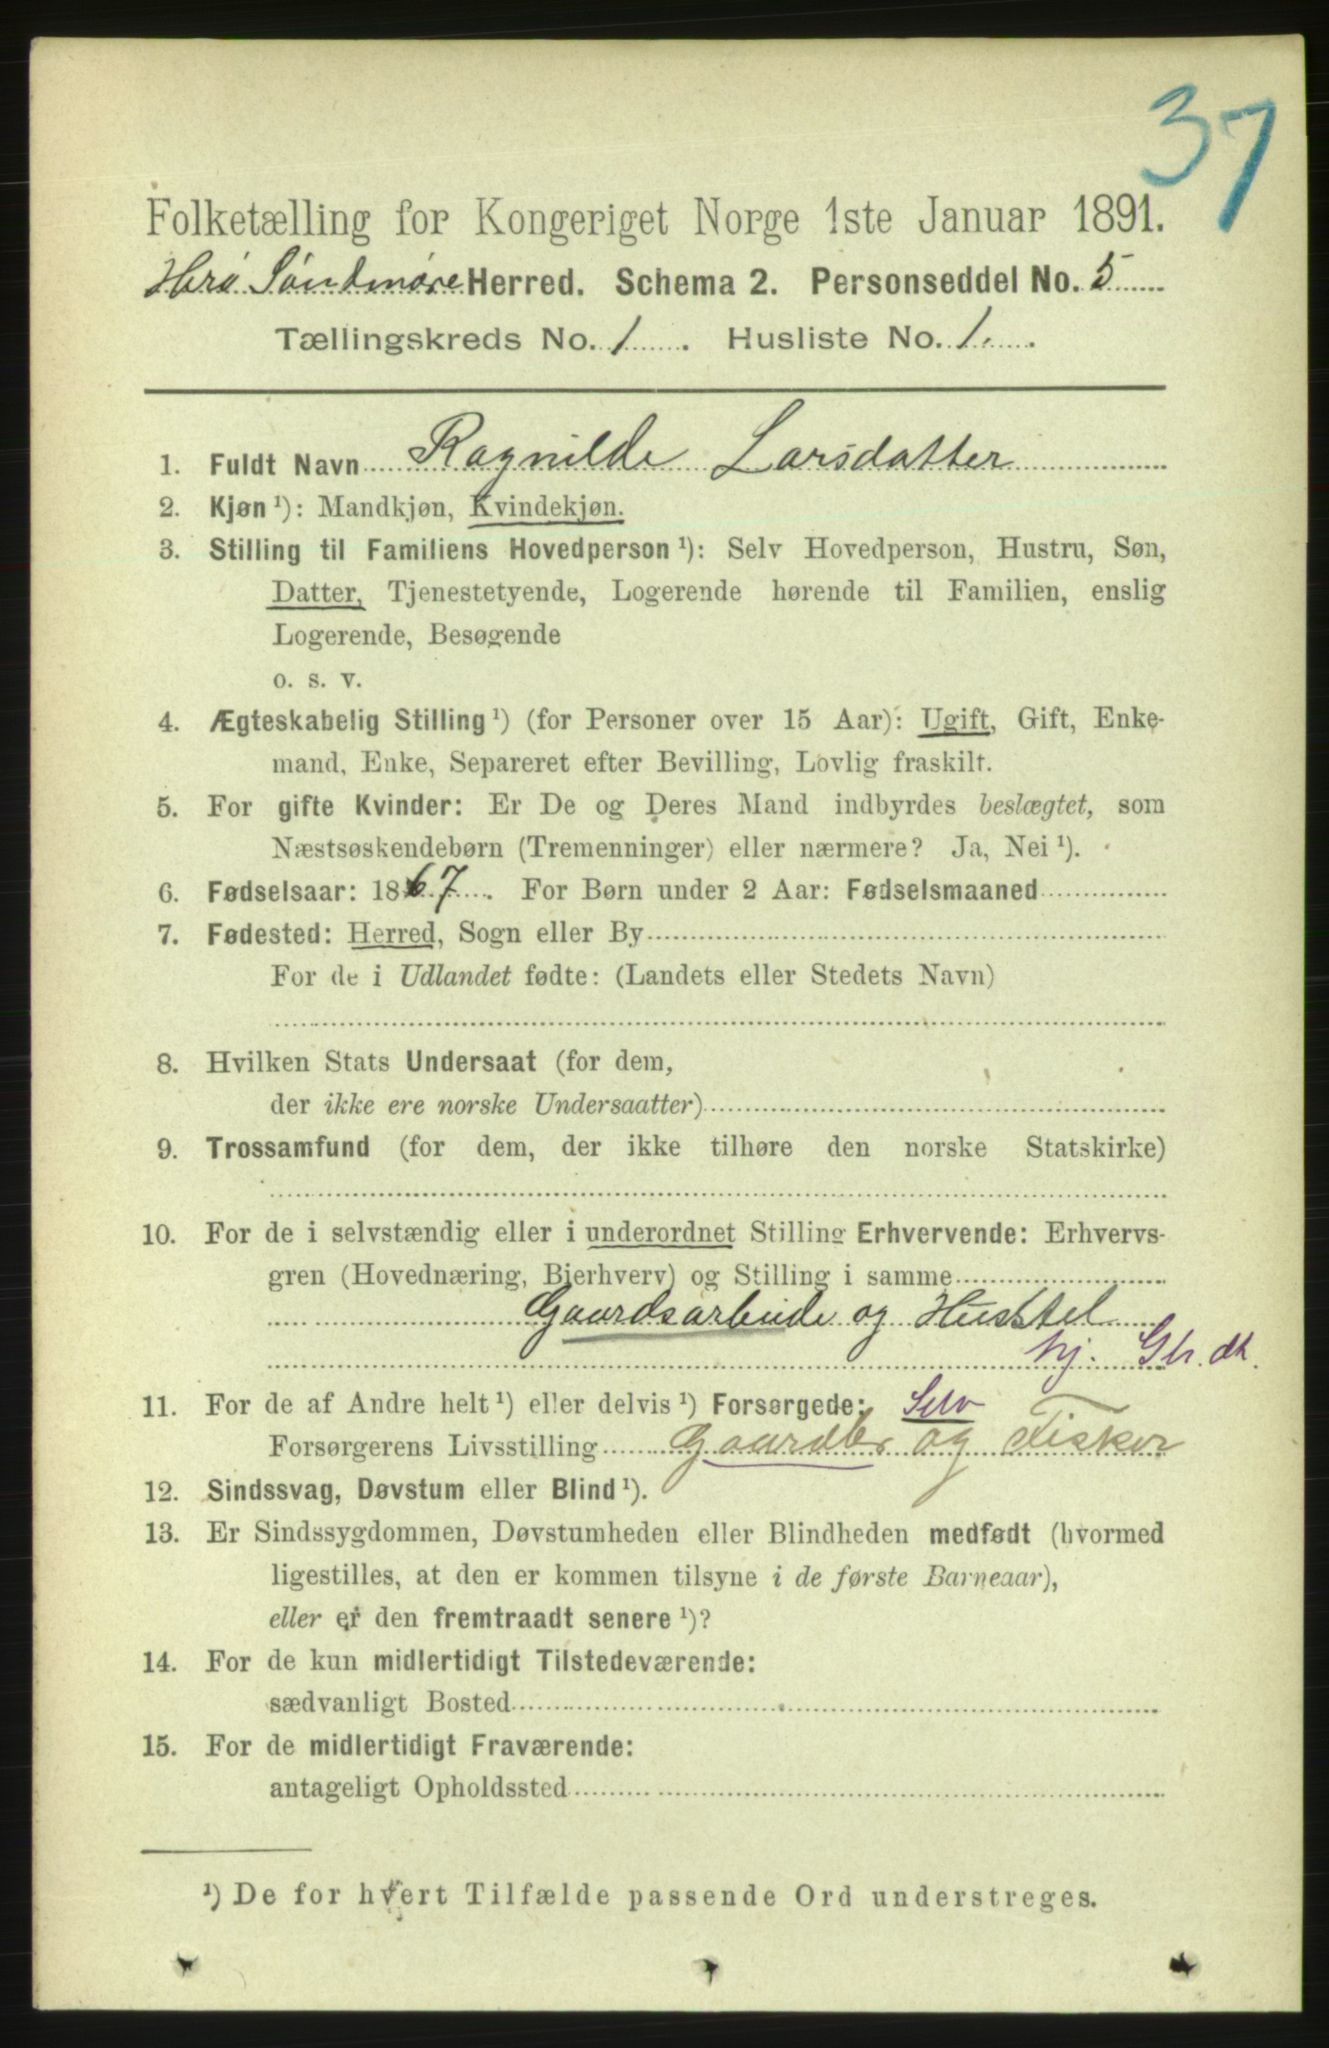 37
Folketælling for Kongeriget Norge 1ste Januar 1891.
Herö Söndmöre Herred. Schema 2. Personseddel No. 5
Tællingskreds No. 1. Husliste No. 1.
1. Fuldt Navn Ragnilde Larsdatter
2. Kjøn ¹): Mandkjøn, Kvindekjøn.
3. Stilling til Familiens Hovedperson ¹): Selv Hovedperson, Hustru, Søn,
Datter, Tjenestetyende, Logerende hørende til Familien, enslig
Logerende, Besøgende
o. s. v.
4. Ægteskabelig Stilling ¹) (for Personer over 15 Aar): Ugift, Gift, Enke-
mand, Enke, Separeret efter Bevilling, Lovlig fraskilt.
5. For gifte Kvinder: Er De og Deres Mand indbyrdes beslægtet, som
Næstsøskendebørn (Tremenninger) eller nærmere? Ja, Nei ¹).
6. Fødselsaar: 1867. For Børn under 2 Aar: Fødselsmaaned
7. Fødested: Herred, Sogn eller By
For de i Udlandet fødte: (Landets eller Stedets Navn)
8. Hvilken Stats Undersaat (for dem,
der ikke ere norske Undersaatter)
9. Trossamfund (for dem, der ikke tilhøre den norske Statskirke)
10. For de i selvstændig eller i underordnet Stilling Erhvervende: Erhvervs-
gren (Hovednæring, Bierhverv) og Stilling i samme
Gaardsarbeide og Husstel
hj. Gbr. dt.
11. For de af Andre helt ¹) eller delvis ¹) Forsørgede: Selv
Forsørgerens Livsstilling Gaardbr og Fisker
12. Sindssvag, Døvstum eller Blind ¹).
13. Er Sindssygdommen, Døvstumheden eller Blindheden medfødt (hvormed
ligestilles, at den er kommen tilsyne i de første Barneaar),
eller er den fremtraadt senere ¹)?
14. For de kun midlertidigt Tilstedeværende:
sædvanligt Bosted
15. For de midlertidigt Fraværende:
antageligt Opholdssted
¹) De for hvert Tilfælde passende Ord understreges.